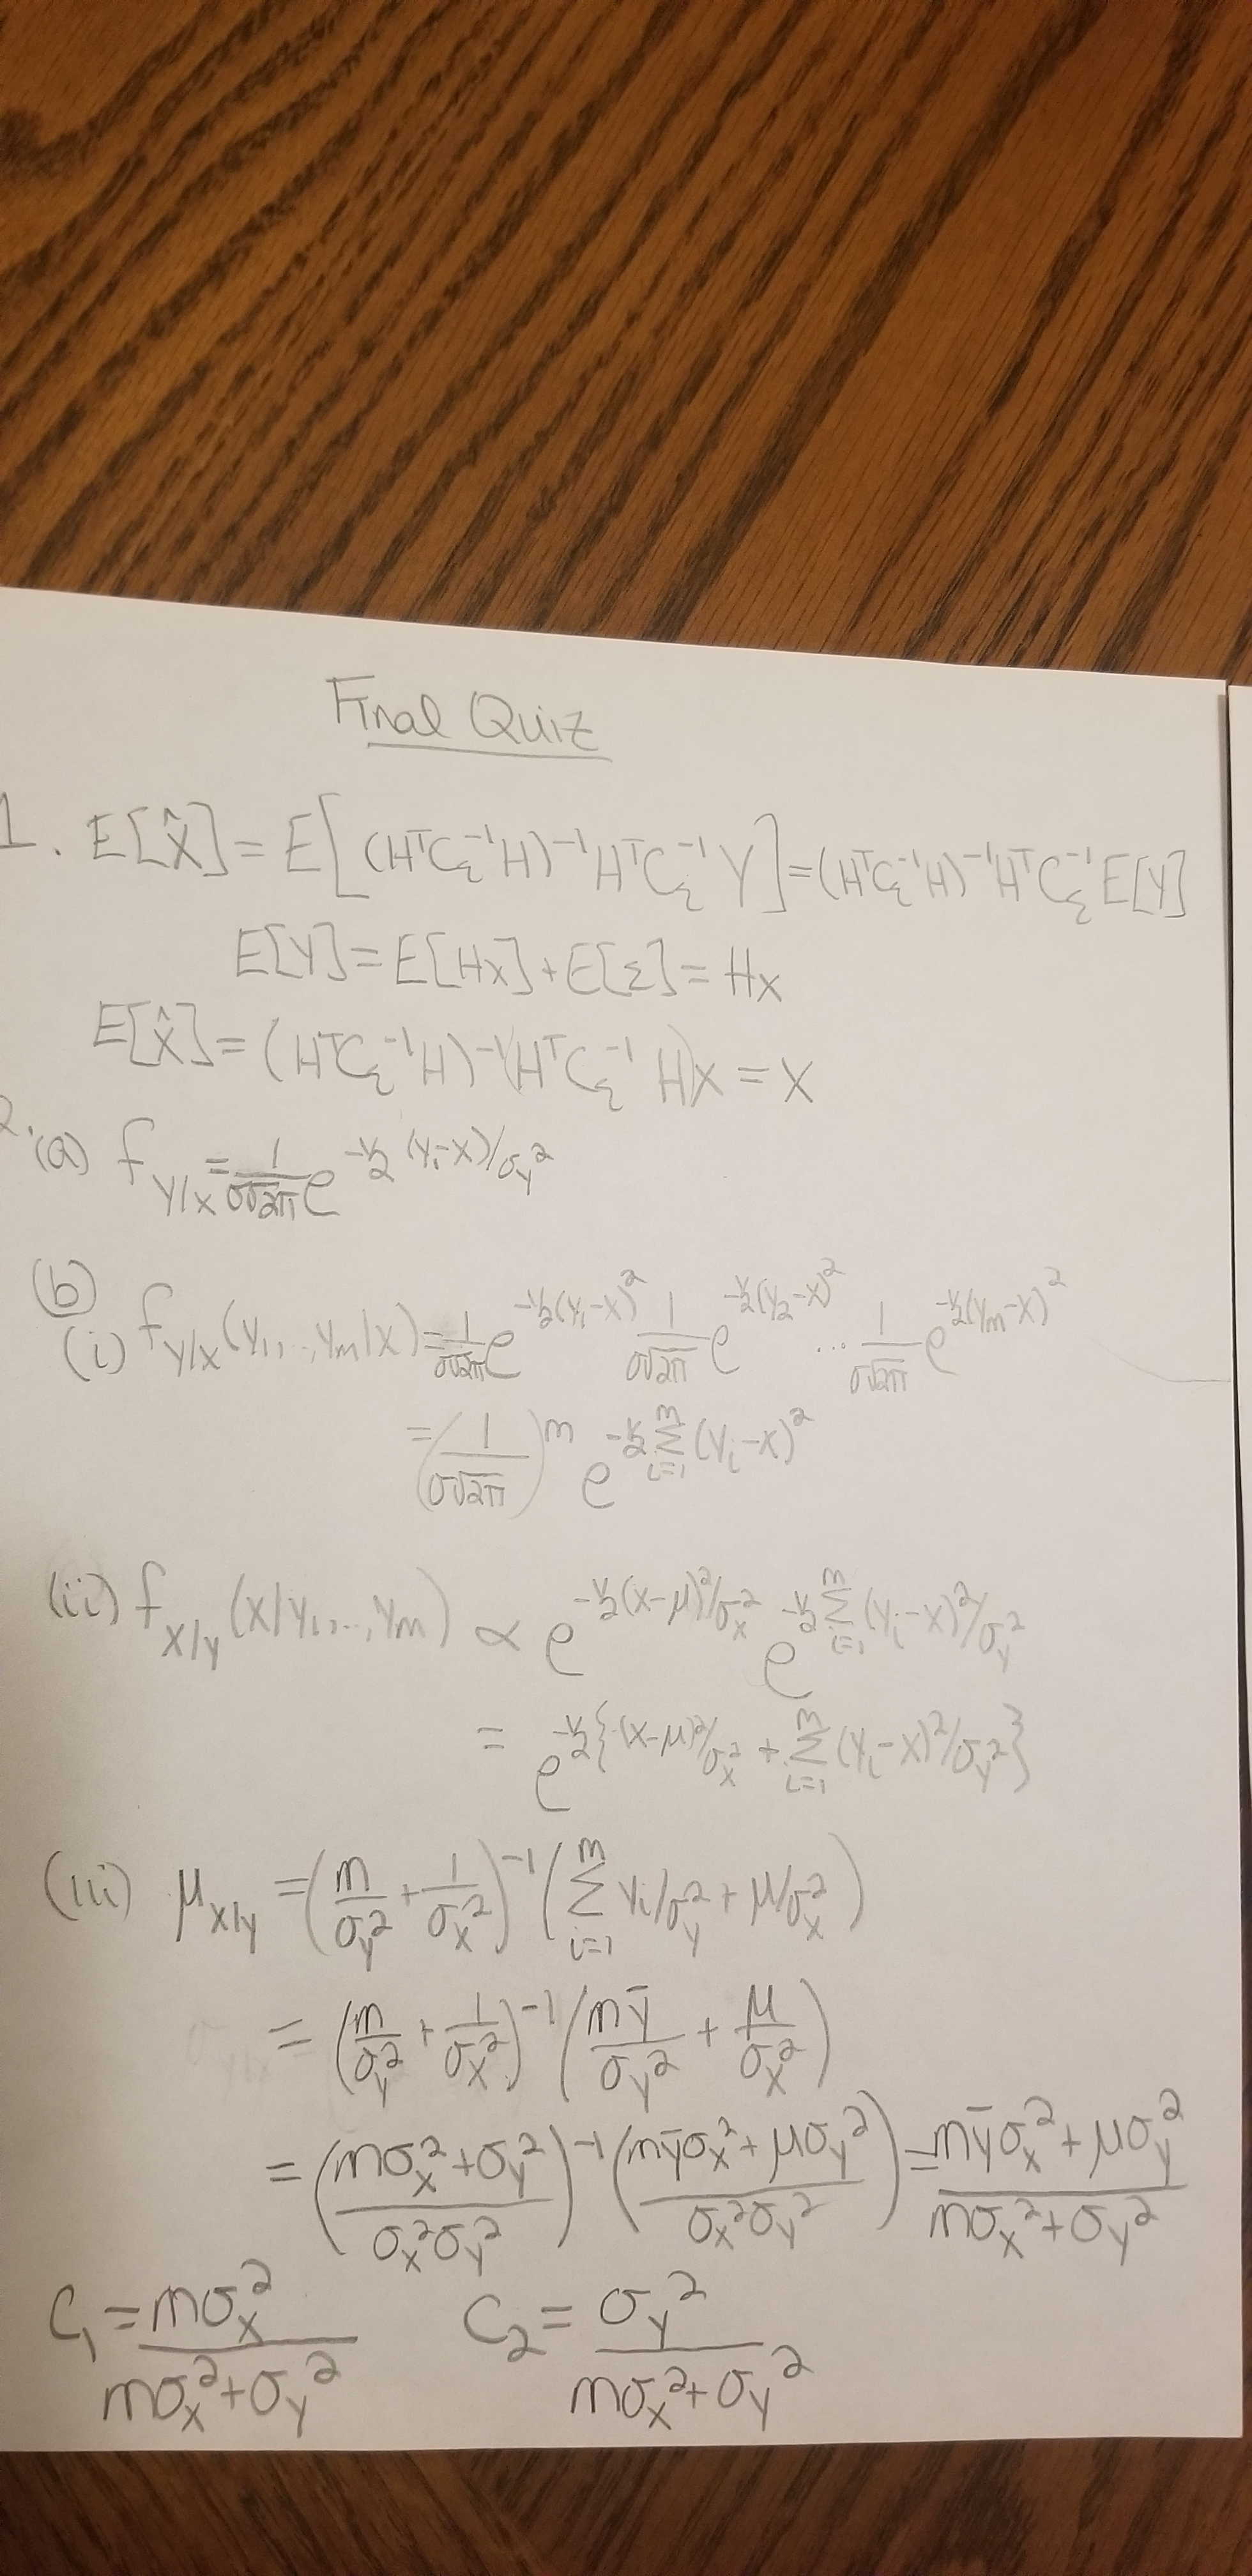 Final Quiz
1. E[X̂] = E[(HᵀC_ε⁻¹H)⁻¹HᵀC_ε⁻¹Y] = (HᵀC_ε⁻¹H)⁻¹HᵀC_ε⁻¹E[Y]
E[Y] = E[Hx] + E[ε] = Hx
E[x̂] = (HᵀC_ε⁻¹H)⁻¹(HᵀC_ε⁻¹H)x = x
2. (a) f_{Y|x} = 1/(σ√2π) e^{-1/2 (yᵢ-x)/σ_y²}
(b)
(i) f_{Y|x}(y₁,..,y_m|x) = 1/(σ√2π) e^{-1/2(y₁-x)²} 1/(σ√2π) e^{-1/2(y₂-x)²} ... 1/(σ√2π) e^{-1/2(y_m-x)²}
= (1/(σ√2π))^m e^{-1/2 Σ_{i=1}^m (yᵢ-x)²}
(ii) f_{x|y}(x|y₁,...,y_m) ∝ e^{-1/2(x-μ)²/σ_x²} e^{-1/2 Σ_{i=1}^m (yᵢ-x)²/σ_y²}
= e^{-1/2{(x-μ)²/σ_x² + Σ_{i=1}^m (yᵢ-x)²/σ_y²}}
(iii) μ_{x|y} = (m/σ_y² + 1/σ_x²)⁻¹ (Σ_{i=1}^m yᵢ/σ_y² + μ/σ_x²)
= (m/σ_y² + 1/σ_x²)⁻¹ (mȳ/σ_y² + μ/σ_x²)
= ((mσ_x² + σ_y²)/(σ_x²σ_y²))⁻¹ ((mȳσ_x² + μσ_y²)/(σ_x²σ_y²)) = (mȳσ_x² + μσ_y²)/(mσ_x² + σ_y²)
C₁ = mσ_x²/(mσ_x² + σ_y²) C₂ = σ_y²/(mσ_x² + σ_y²)